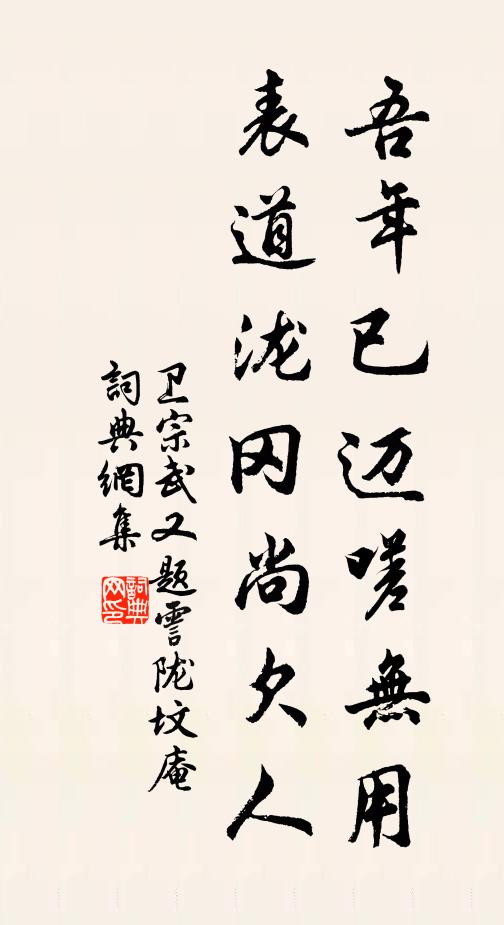 吾年已迈嗟無用
表道泷冈尚欠人
卫宗武又题霅陇坟庵
詞典網集
詞典
网印